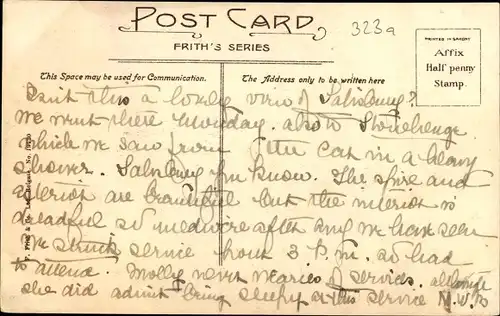 POST CARD
323a
FRITH'S SERIES
PRINTED IN SAXONY
Affix
Half penny
Stamp.
This Space may be used for Communication.
The Address only to be written here
Isn't this a lovely view of Salisbury?
We went there Monday. also to Stonehenge
which we saw from the car in a heavy
shower. Salisbury you know. The spire and
exterior are beautiful but the interior is
dreadful so mediocre after any we have seen
We struck service from 3 P.m. so had
to attend. Molly never wearies of services. although
she did admit being sleepy at this service